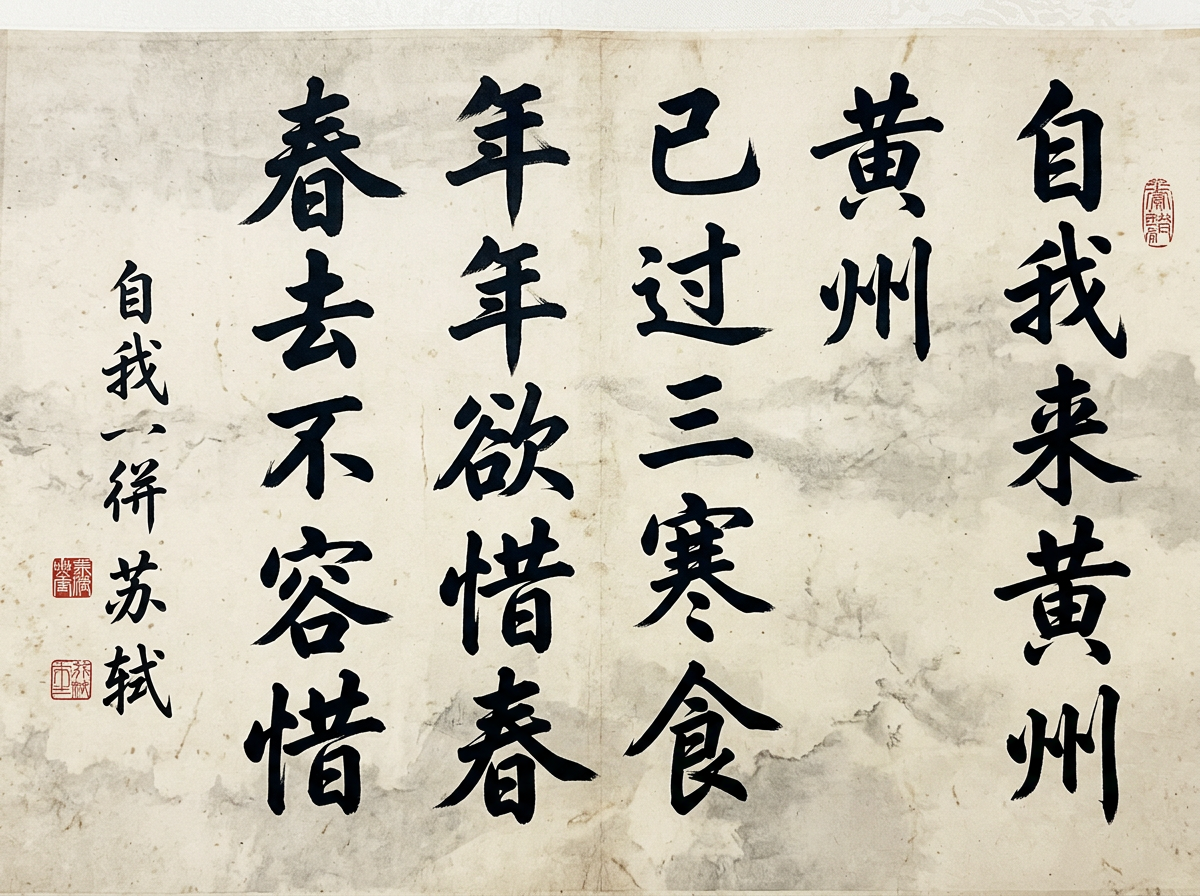 自我来黄州
黄州
已过三寒食
年年欲惜春
春去不容惜
自我一併苏轼